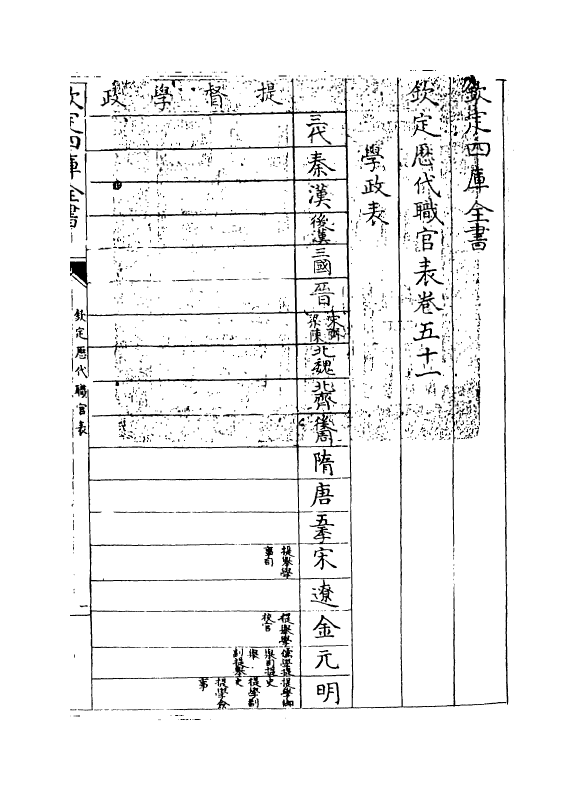 欽定四庫全書
欽定歷代職官表卷五十一
學政表
三代
秦
漢
後漢
三國
晉
宋齊梁陳
北魏
北齊
後周
隋
唐
五季
宋
遼
金
元
明
提督學政
提舉學事司
提舉學校官
儒學提舉司提舉
副提舉
提學御史
提學副史
提學僉事
欽定四庫全書
欽定歷代職官表
一